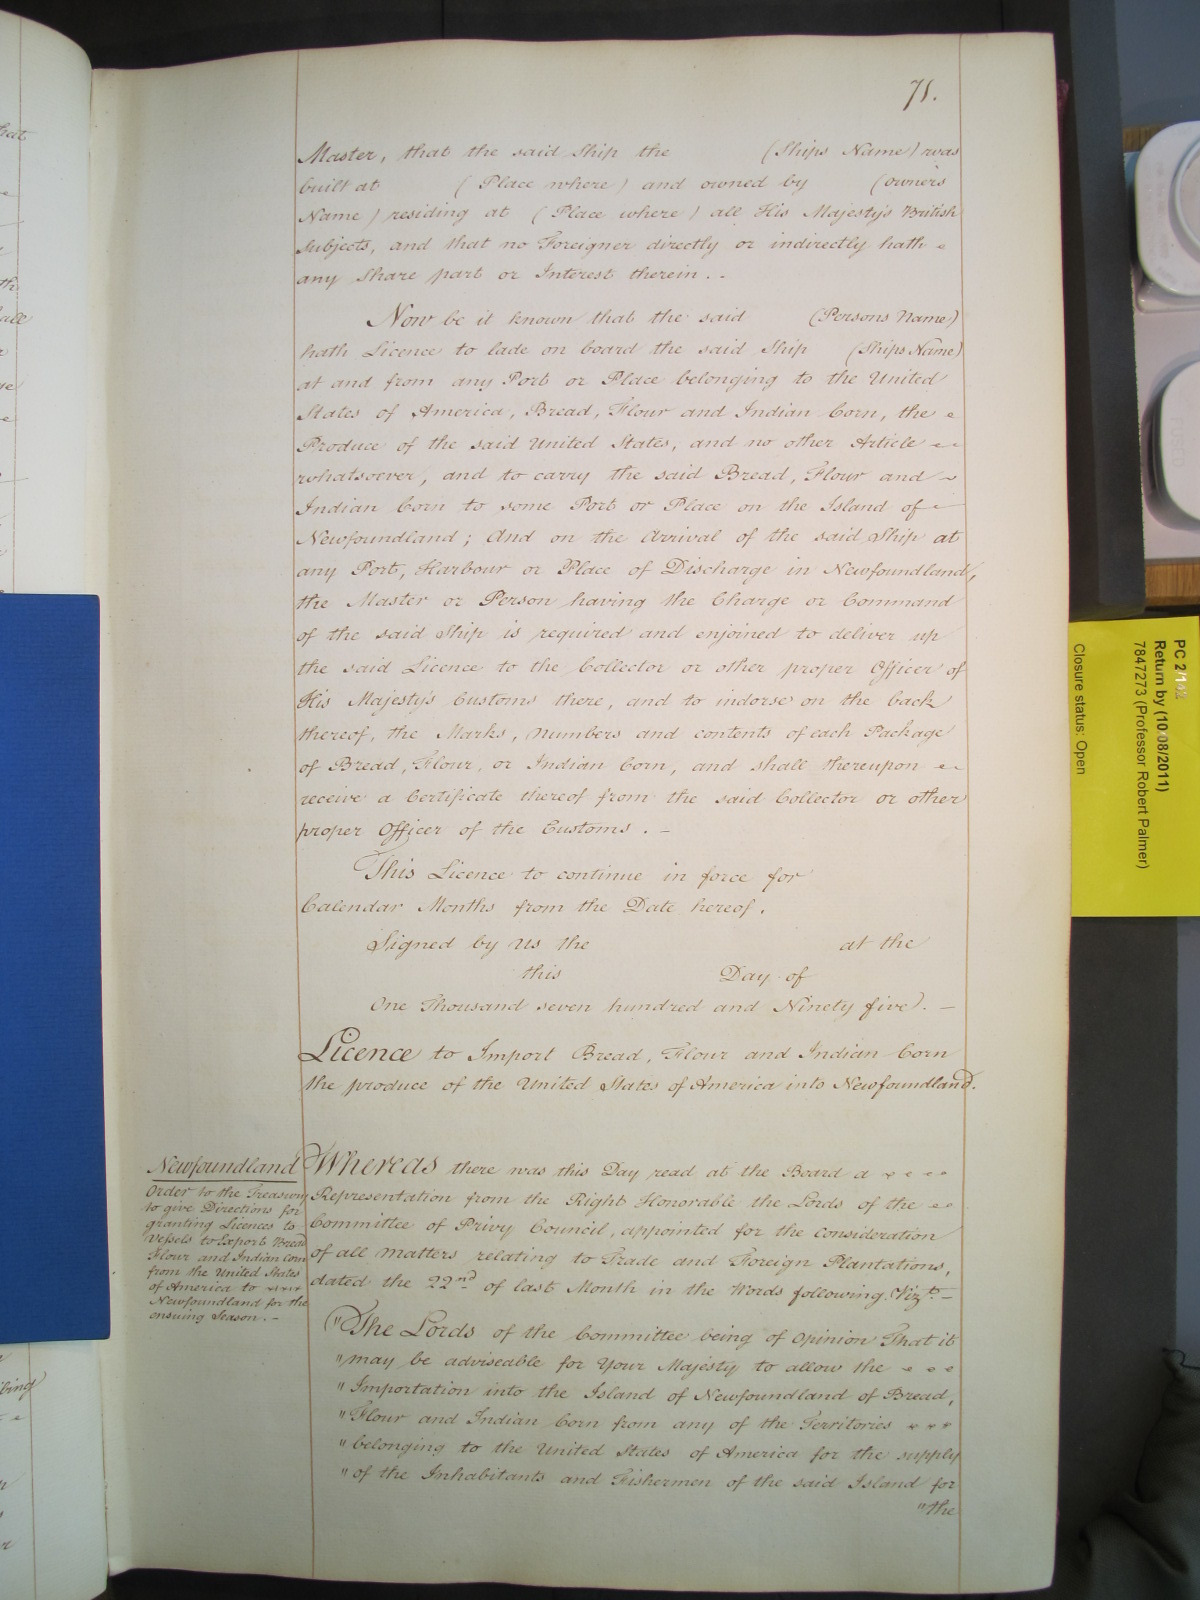 71.
Master, that the said Ship the (Ships Name) was
built at (Place where) and owned by (owners
Name) residing at (Place where) all His Majesty's British
Subjects, and that no Foreigner directly or indirectly hath
any Share part or Interest therein.
Now be it known that the said (Persons Name)
hath Licence to lade on board the said Ship (Ships Name)
at and from any Port or Place belonging to the United
States of America, Bread, Flour and Indian Corn, the
Produce of the said United States, and no other Article
whatsoever, and to carry the said Bread, Flour and
Indian Corn to some Port or Place on the Island of
Newfoundland; And on the Arrival of the said Ship at
any Port, Harbour or Place of Discharge in Newfoundland,
the Master or Person having the Charge or Command
of the said Ship is required and enjoined to deliver up
the said Licence to the Collector or other proper Officer of
His Majesty's Customs there, and to indorse on the back
thereof, the Marks, Numbers and contents of each Package
of Bread, Flour, or Indian Corn, and shall thereupon
receive a Certificate thereof from the said Collector or other
proper Officer of the Customs. –
This Licence to continue in force for
Calendar Months from the Date hereof.
Signed by Us the at the
this Day of
One Thousand seven hundred and Ninety five. –
Licence to Import Bread, Flour and Indian Corn
the produce of the United States of America into Newfoundland.
Newfoundland
Order to the Treasury
to give Directions for
granting Licences to
Vessels to Export Bread
Flour and Indian Corn
from the United States
of America to
Newfoundland for the
ensuing Season. –
Whereas there was this Day read at the Board a
Representation from the Right Honorable the Lords of the
Committee of Privy Council, appointed for the Consideration
of all Matters relating to Trade and Foreign Plantations,
dated the 22nd of last Month in the Words following. Vizt. –
"The Lords of the Committee being of Opinion That it
"may be adviseable for Your Majesty to allow the
"Importation into the Island of Newfoundland of Bread,
"Flour and Indian Corn from any of the Territories
"belonging to the United States of America for the supply
"of the Inhabitants and Fishermen of the said Island for
"the
PC 2/142
Return by (10/08/2011)
7847273 (Professor Robert Palmer)
Closure status: Open